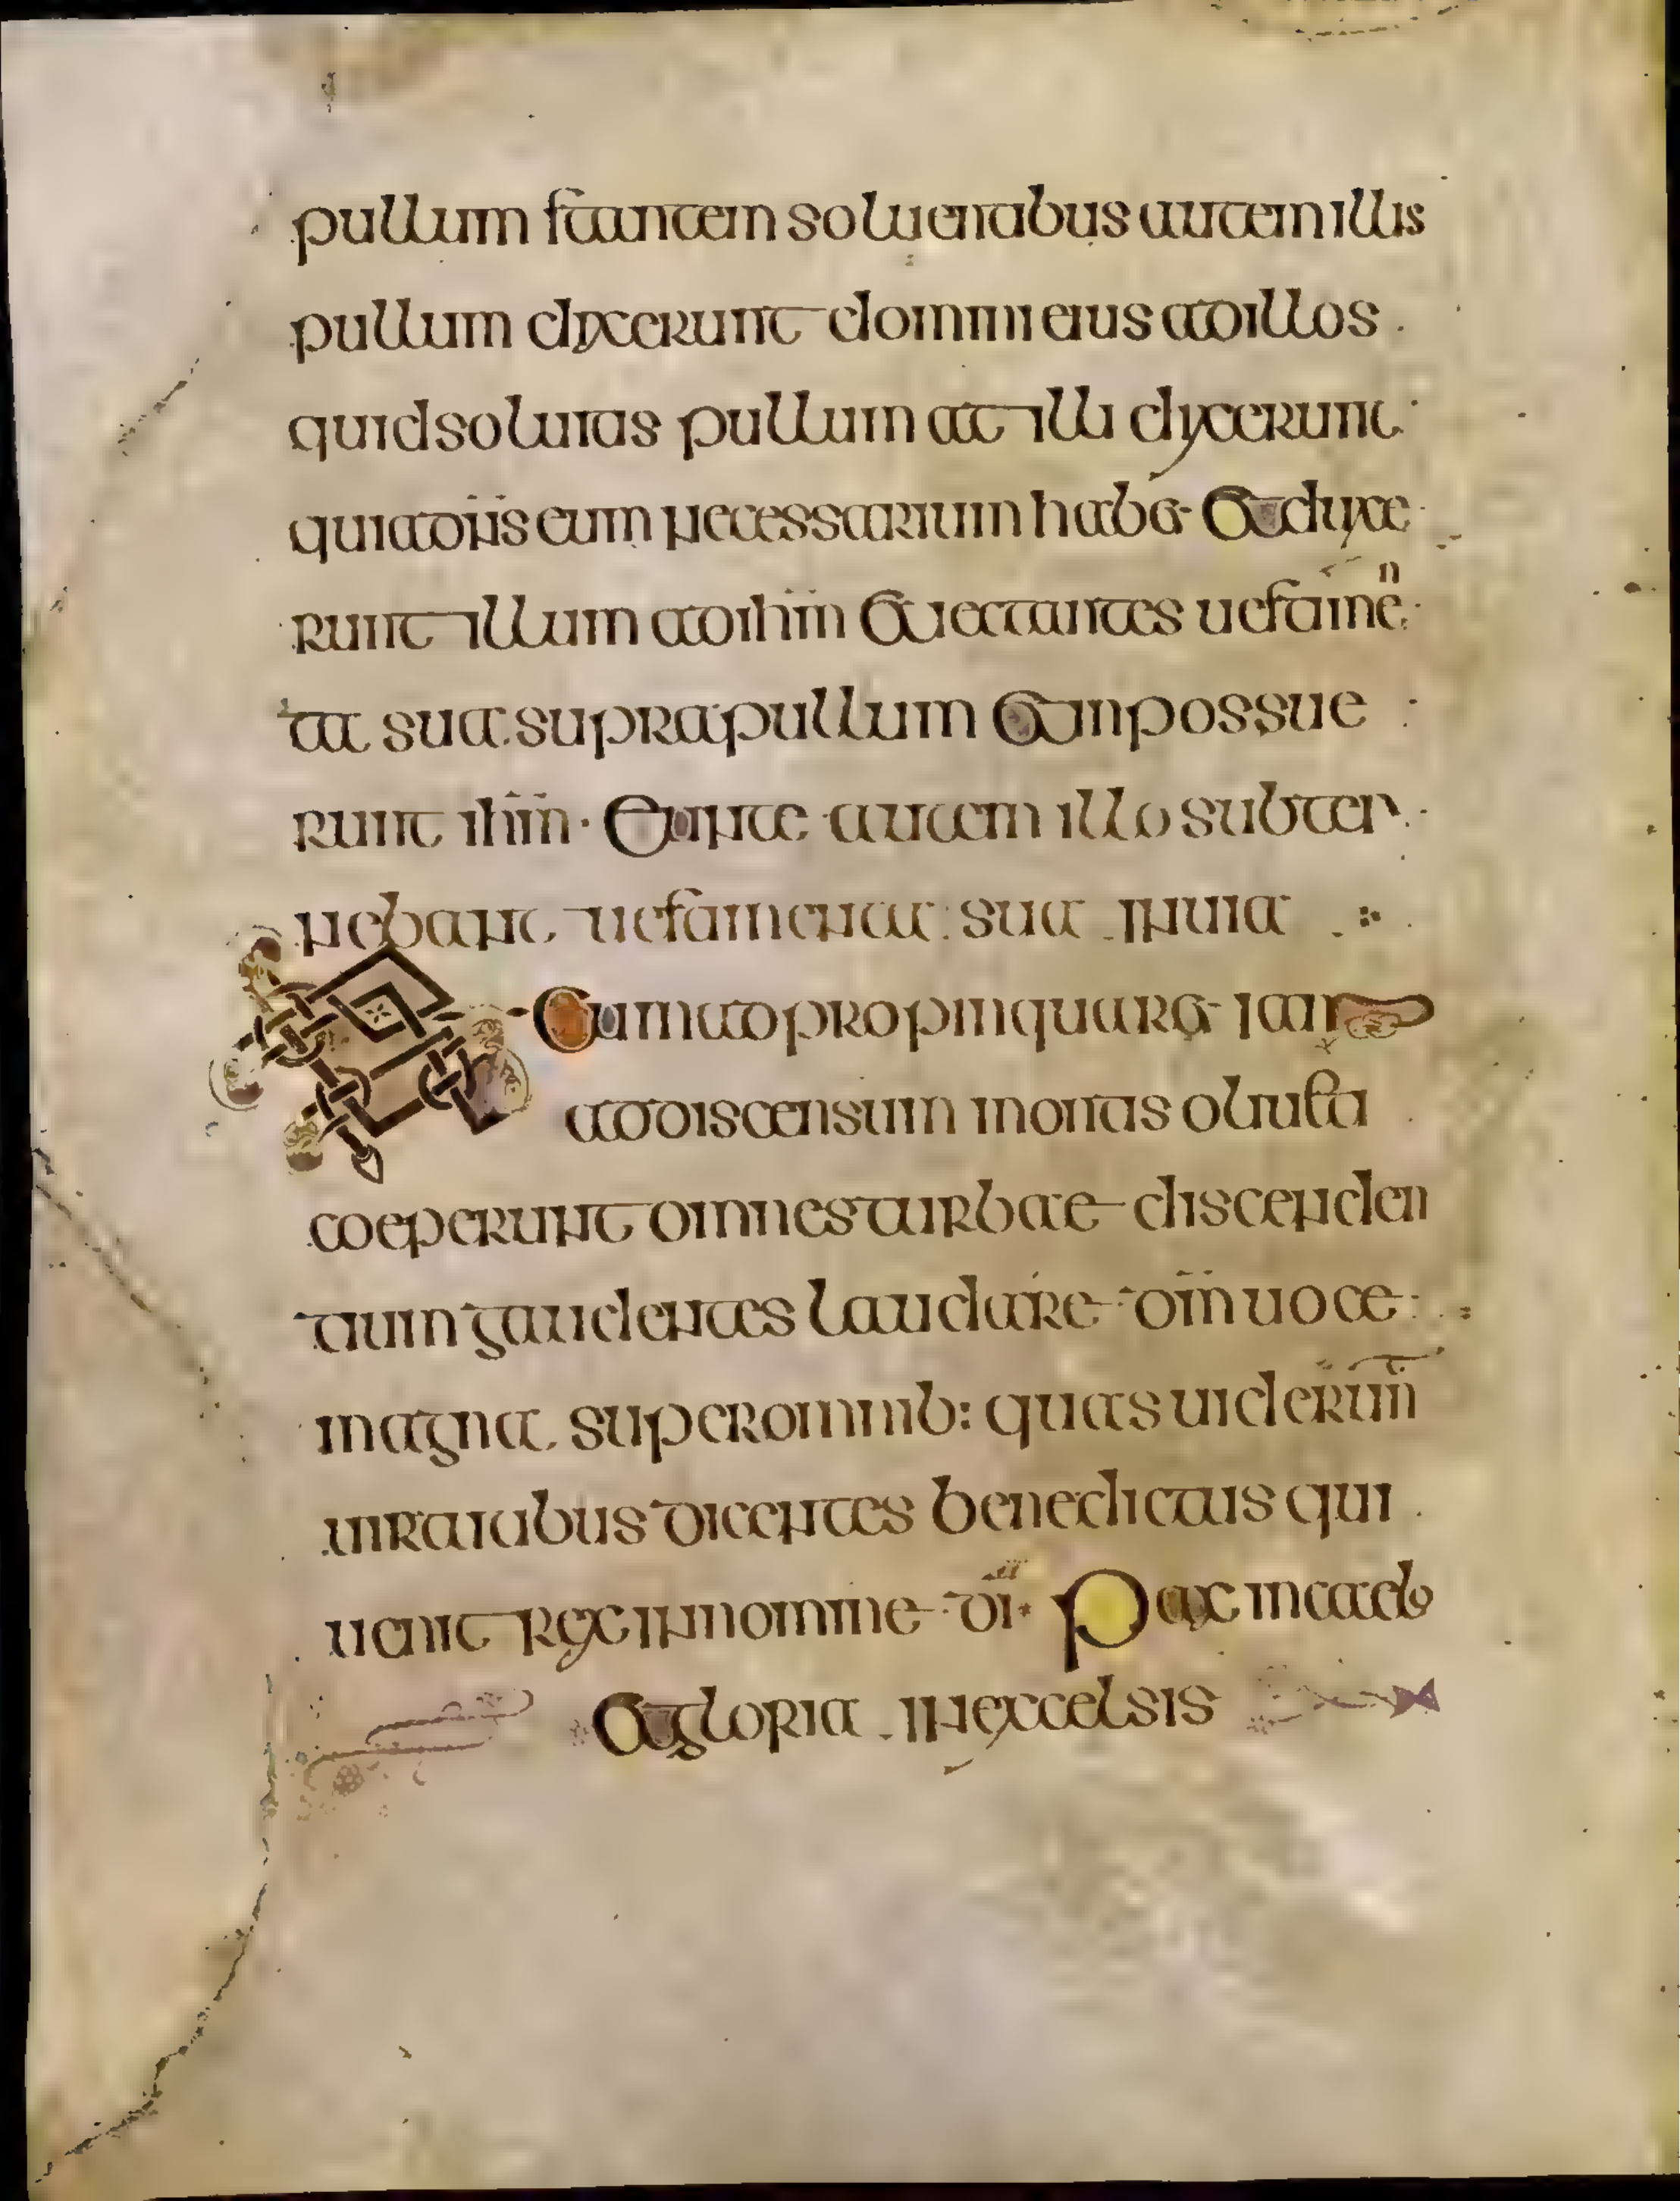 pullum stantem soluentibus autem illis
pullum dixerunt domini eius ad illos
quid soluitis pullum at illi dixerunt
quia dn̄s eum necessarium habet Et duxe
runt illum ad ihm̄ Et iectantes uestimen
ta sua supra pullum Et inpossue
runt ihm̄ · Eunte autem illo subter
nebant uestimenta sua in uia
Et Cum adpropinquaret iam
ad discensum montis oliueti
coeperunt omnes turbae discenden
tium gaudentes laudare dm̄ uoce
magna super omnib: quas uiderunt
uirtutibus dicentes benedictus qui
uenit rex in nomine dī · Pax in caelo
Et gloria in excelsis